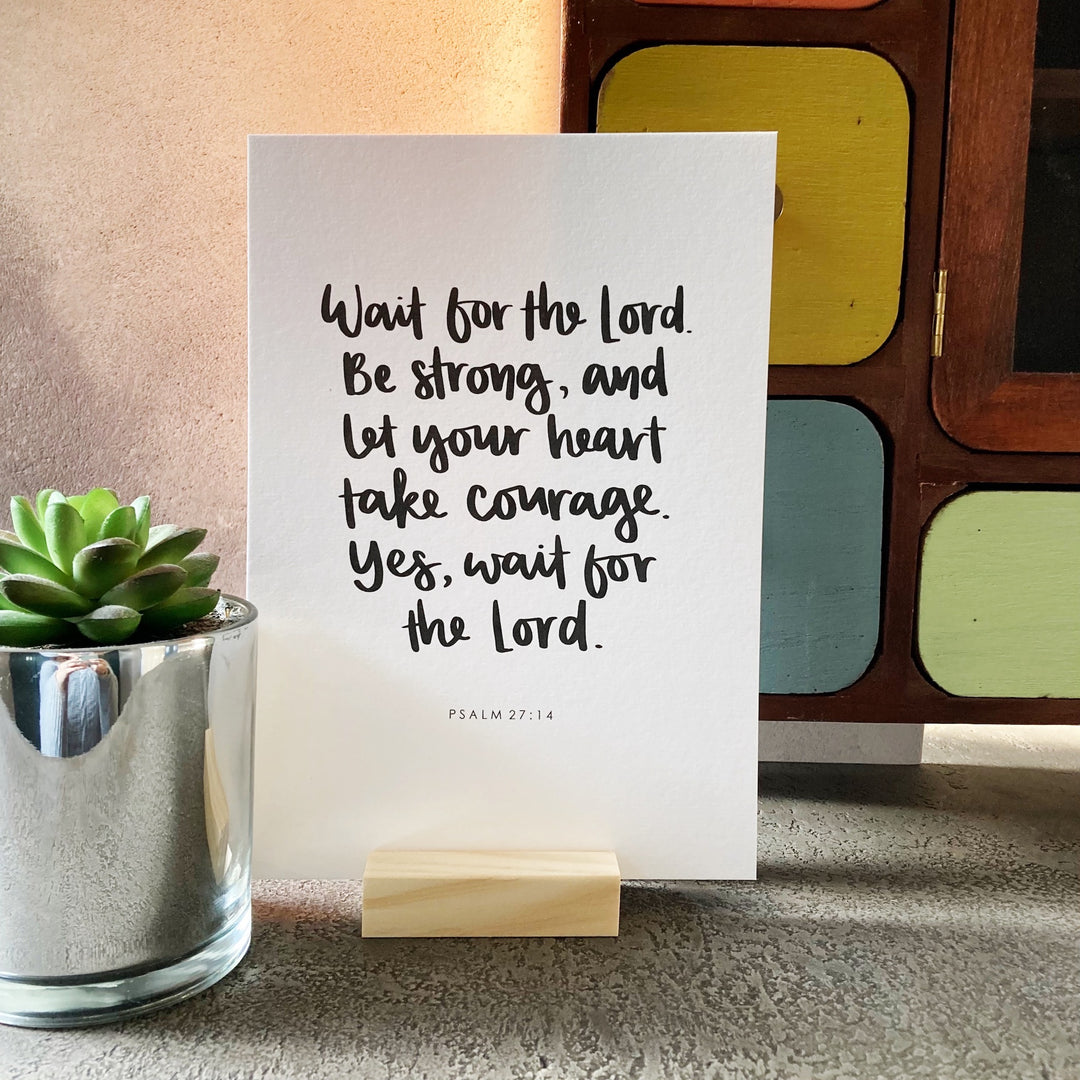 Wait for the Lord.
Be strong, and
let your heart
take courage.
Yes, wait for
the Lord.
PSALM 27:14